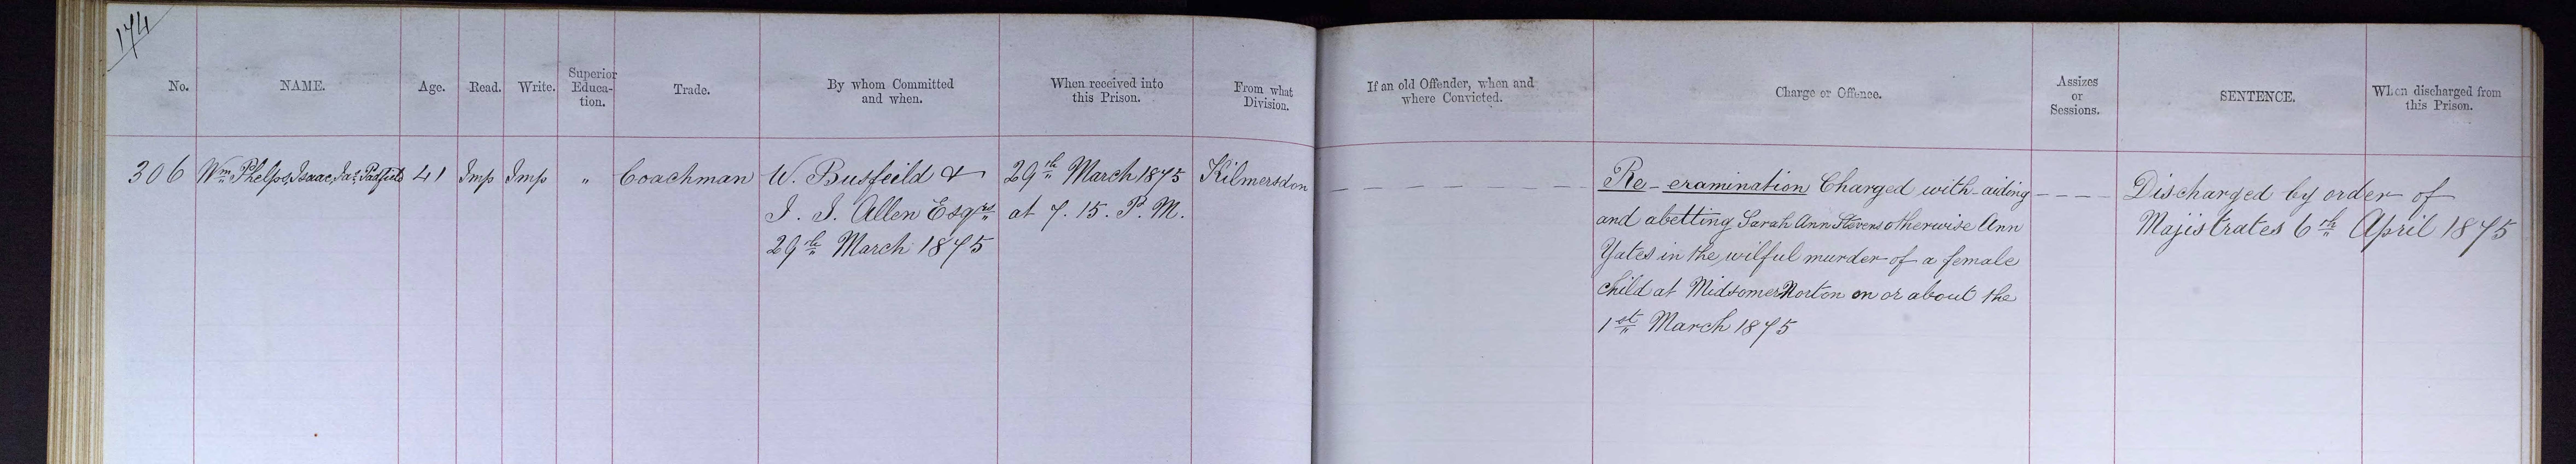 174
No.
NAME.
Age.
Read.
Write.
Superior
Educa-
tion.
Trade.
By whom Committed
and when.
When received into
this Prison.
From what
Division.
If an old Offender, when and
where Convicted.
Charge or Offence.
Assizes
or
Sessions.
SENTENCE.
When discharged from
this Prison.
306
Wm Phelps, Isaac, Jas Padfield
41
Imp
Imp
"
Coachman
W. Busfeild &
J. J. Allen Esqrs
29th March 1875
29th March 1875
at 7. 15. P. M.
Kilmersdon
Re-examination Charged with aiding
and abetting Sarah Ann Stevens otherwise Ann
Yates in the wilful murder of a female
child at Midsomer Norton on or about the
1st March 1875
Discharged by order of
Majistrates 6th April 1875